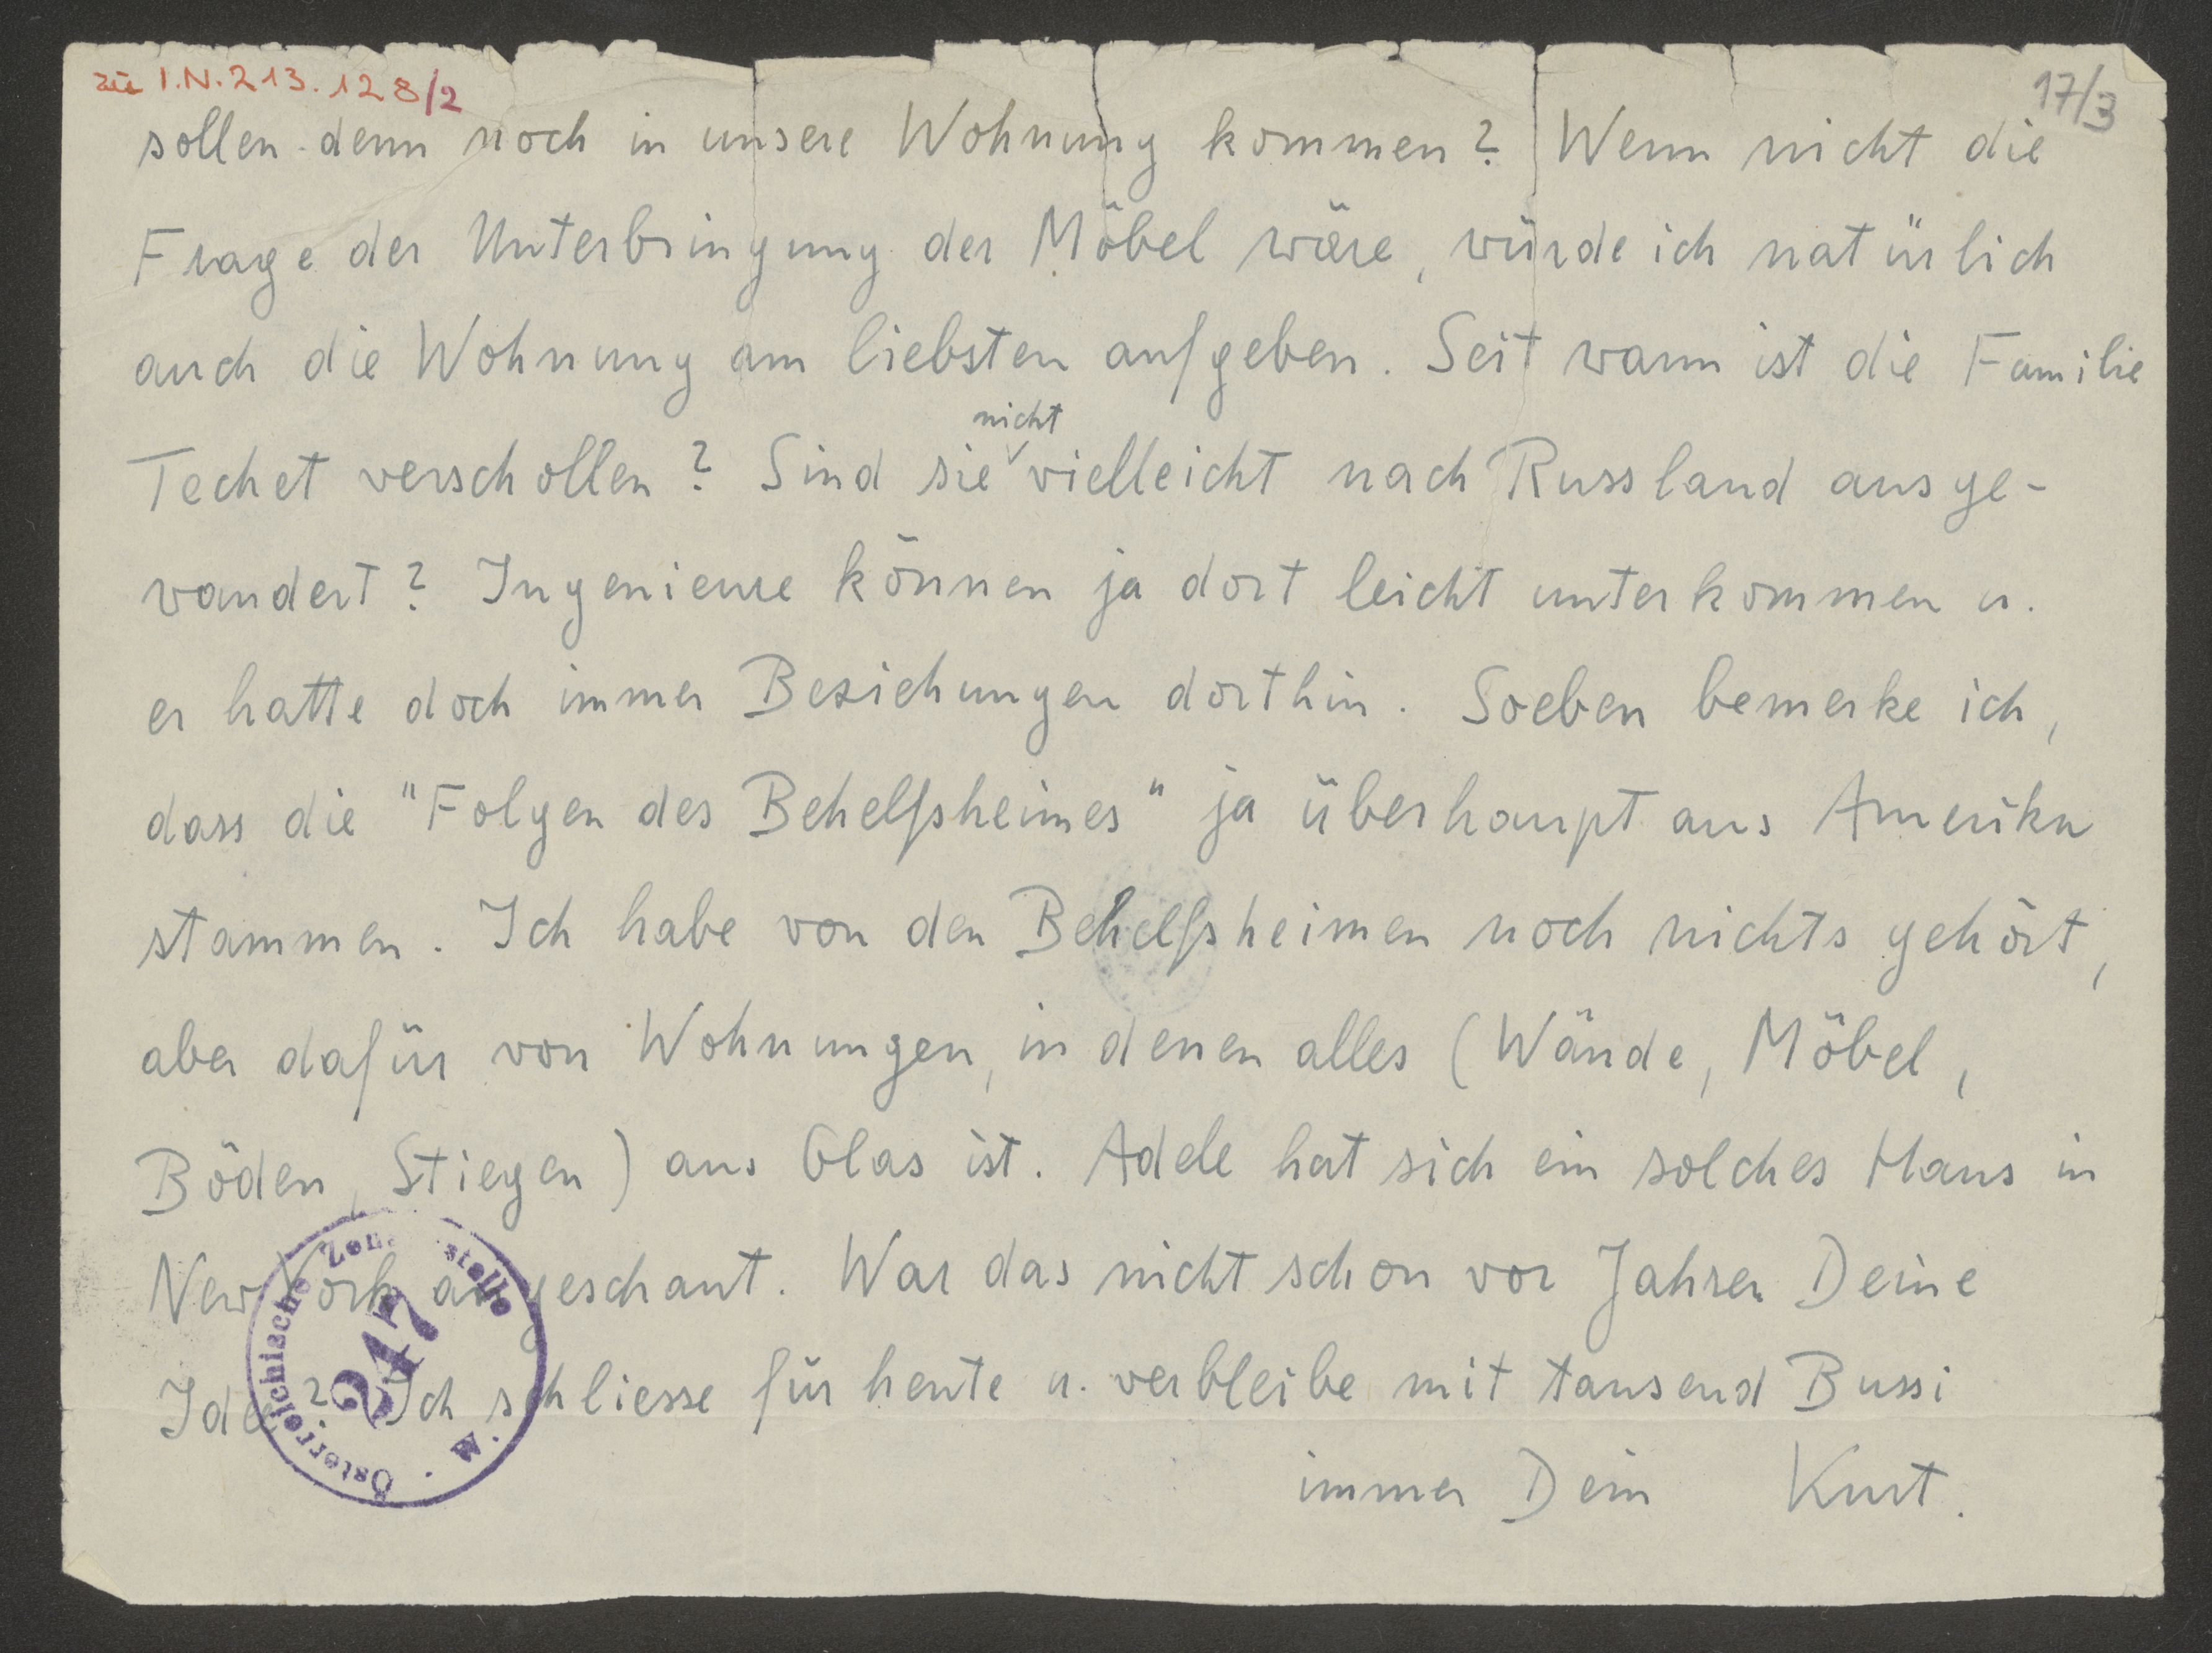 zu I.N. 213.128/2
17/3
sollen denn noch in unsere Wohnung kommen? Wenn nicht die
Frage der Unterbringung der Möbel wäre, würde ich natürlich
auch die Wohnung am liebsten aufgeben. Seit wann ist die Familie
nicht
Techet verschollen? Sind sie vielleicht nach Russland ausge-
wandert? Ingenieure können ja dort leicht unterkommen u.
er hatte doch immer Beziehungen dorthin. Soeben bemerke ich,
dass die "Folgen des Behelfsheimes" ja überhaupt aus Amerika
stammen. Ich habe von den Behelfsheimen noch nichts gehört,
aber dafür von Wohnungen, in denen alles (Wände, Möbel,
Böden, Stiegen) aus Glas ist. Adele hat sich ein solches Haus in
New York angeschaut. War das nicht schon vor Jahren Deine
Idee? Ich schliesse für heute u. verbleibe mit tausend Bussi
immer Dein Kurt.
Österreichische Zen stelle
247
M.